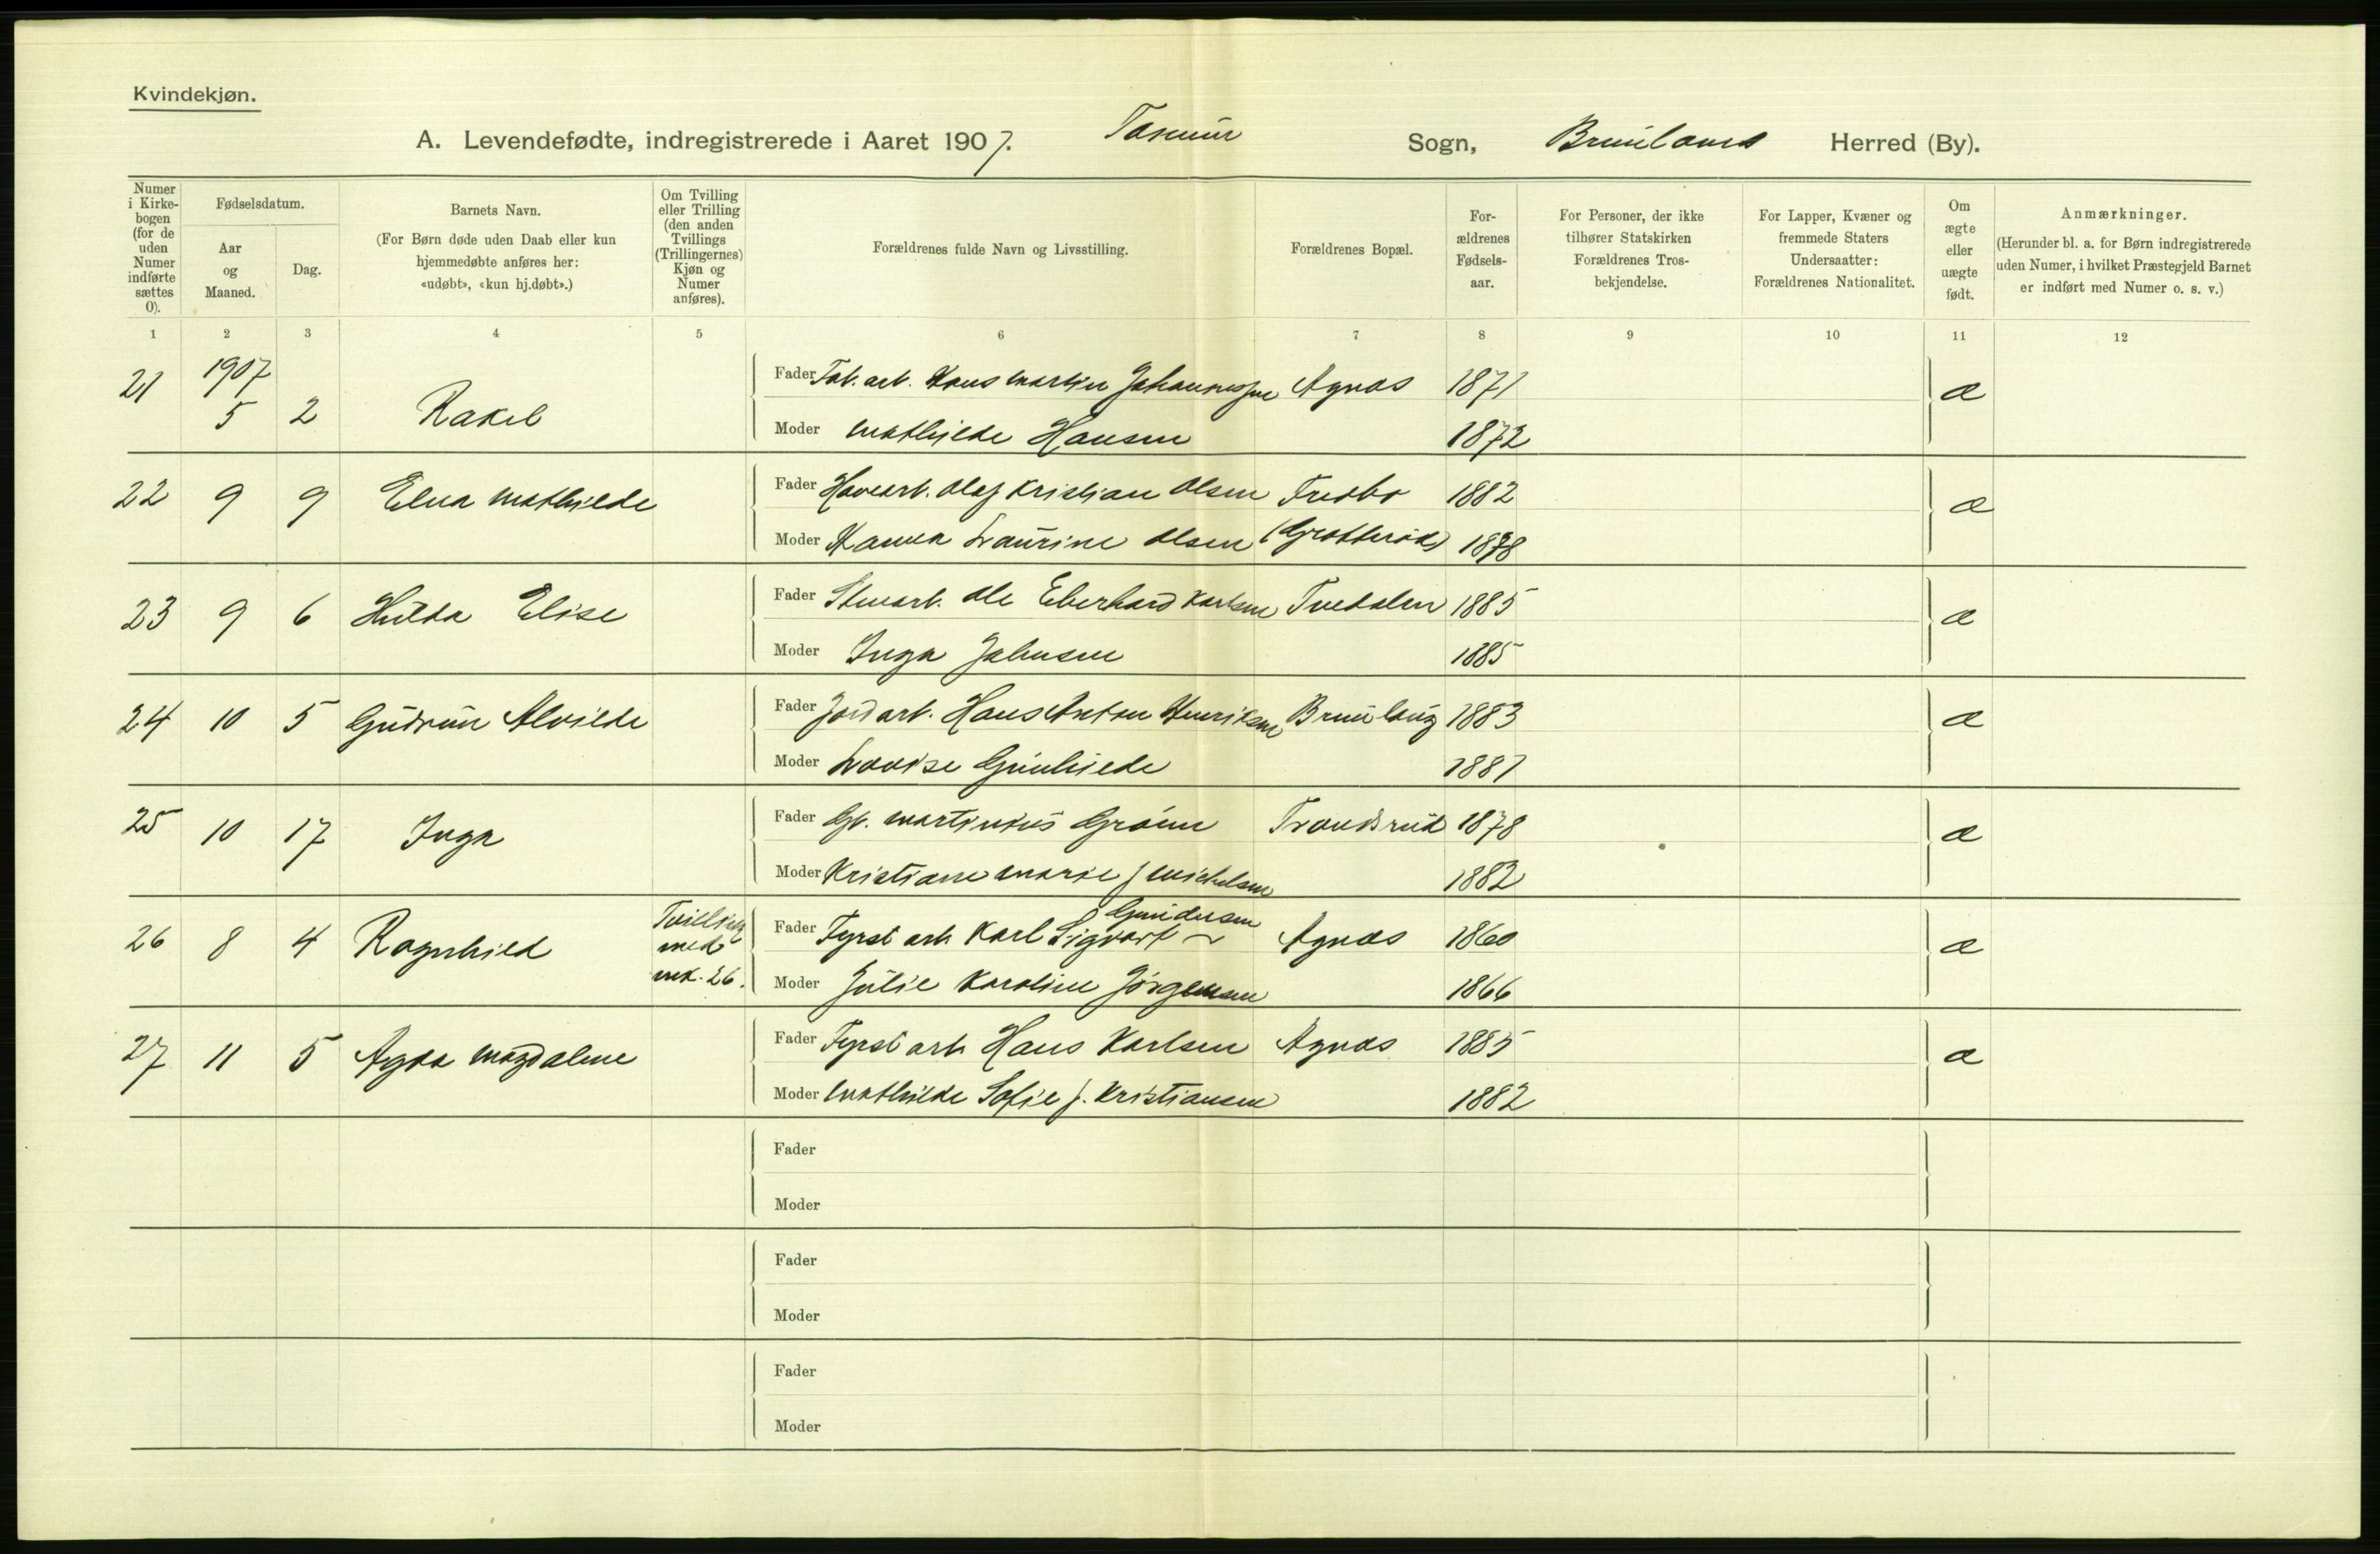 Kvindekjøn.
A. Levendefødte, indregistrerede i Aaret 1907. Tanum Sogn, Brunlanes Herred (By).
Numer i Kirkebogen (for de uden Numer indførte sættes 0).
Fødselsdatum.
Aar og Maaned.
Dag.
Barnets Navn.
(For Børn døde uden Daab eller kun hjemmedøbte anføres her: «udøbt», «kun hj.døbt».)
Om Tvilling eller Trilling (den anden Tvillings (Trillingernes) Kjøn og Numer anføres).
Forældrenes fulde Navn og Livsstilling.
Forældrenes Bopæl.
Forældrenes Fødselsaar.
For Personer, der ikke tilhører Statskirken Forældrenes Trosbekjendelse.
For Lapper, Kvæner og fremmede Staters Undersaatter: Forældrenes Nationalitet.
Om ægte eller uægte født.
Anmærkninger.
(Herunder bl. a. for Børn indregistrerede uden Numer, i hvilket Præstegjeld Barnet er indført med Numer o. s. v.)
1 2 3 4 5 6 7 8 9 10 11 12
21 1907 5 2 Rakel Fader Fab. arb. Hans Martin Johannessen Agnæs 1871 æ
Moder Mathilde Hansen 1872
22 9 9 Elna Mathilde Fader Havearb. Olaf Kristian Olsen 1882 æ
Moder Hanna Laurine Olsen (Grøtterød) 1878
23 9 6 Hulda Elise Fader Stenarb. Ole Eberhard Karlsen Tvedalen 1885 æ
Moder Inga Johnsen 1885
24 10 5 Gudrun Alvilde Fader Jordarb. Hans Anton Henriksen Brunlaug 1883 æ
Moder Lovise Gunhilde 1881
25 10 17 Inga Fader Gb. Martinius Grønn 1878 æ
Moder Kristiane Marie f Mickelsen 1882
26 8 4 Ragnhild Tvilling med mk. 26. Fader Fyrst arb Karl Sigvart Gundersen Agnæs 1860 æ
Moder Julie Karoline Jørgensen 1866
27 11 5 Agda Magdalene Fader Fyrst arb Hans Karlsen Agnæs 1885 æ
Moder Mathilde Sofie f. Kristiansen 1882
Fader
Moder
Fader
Moder
Fader
Moder